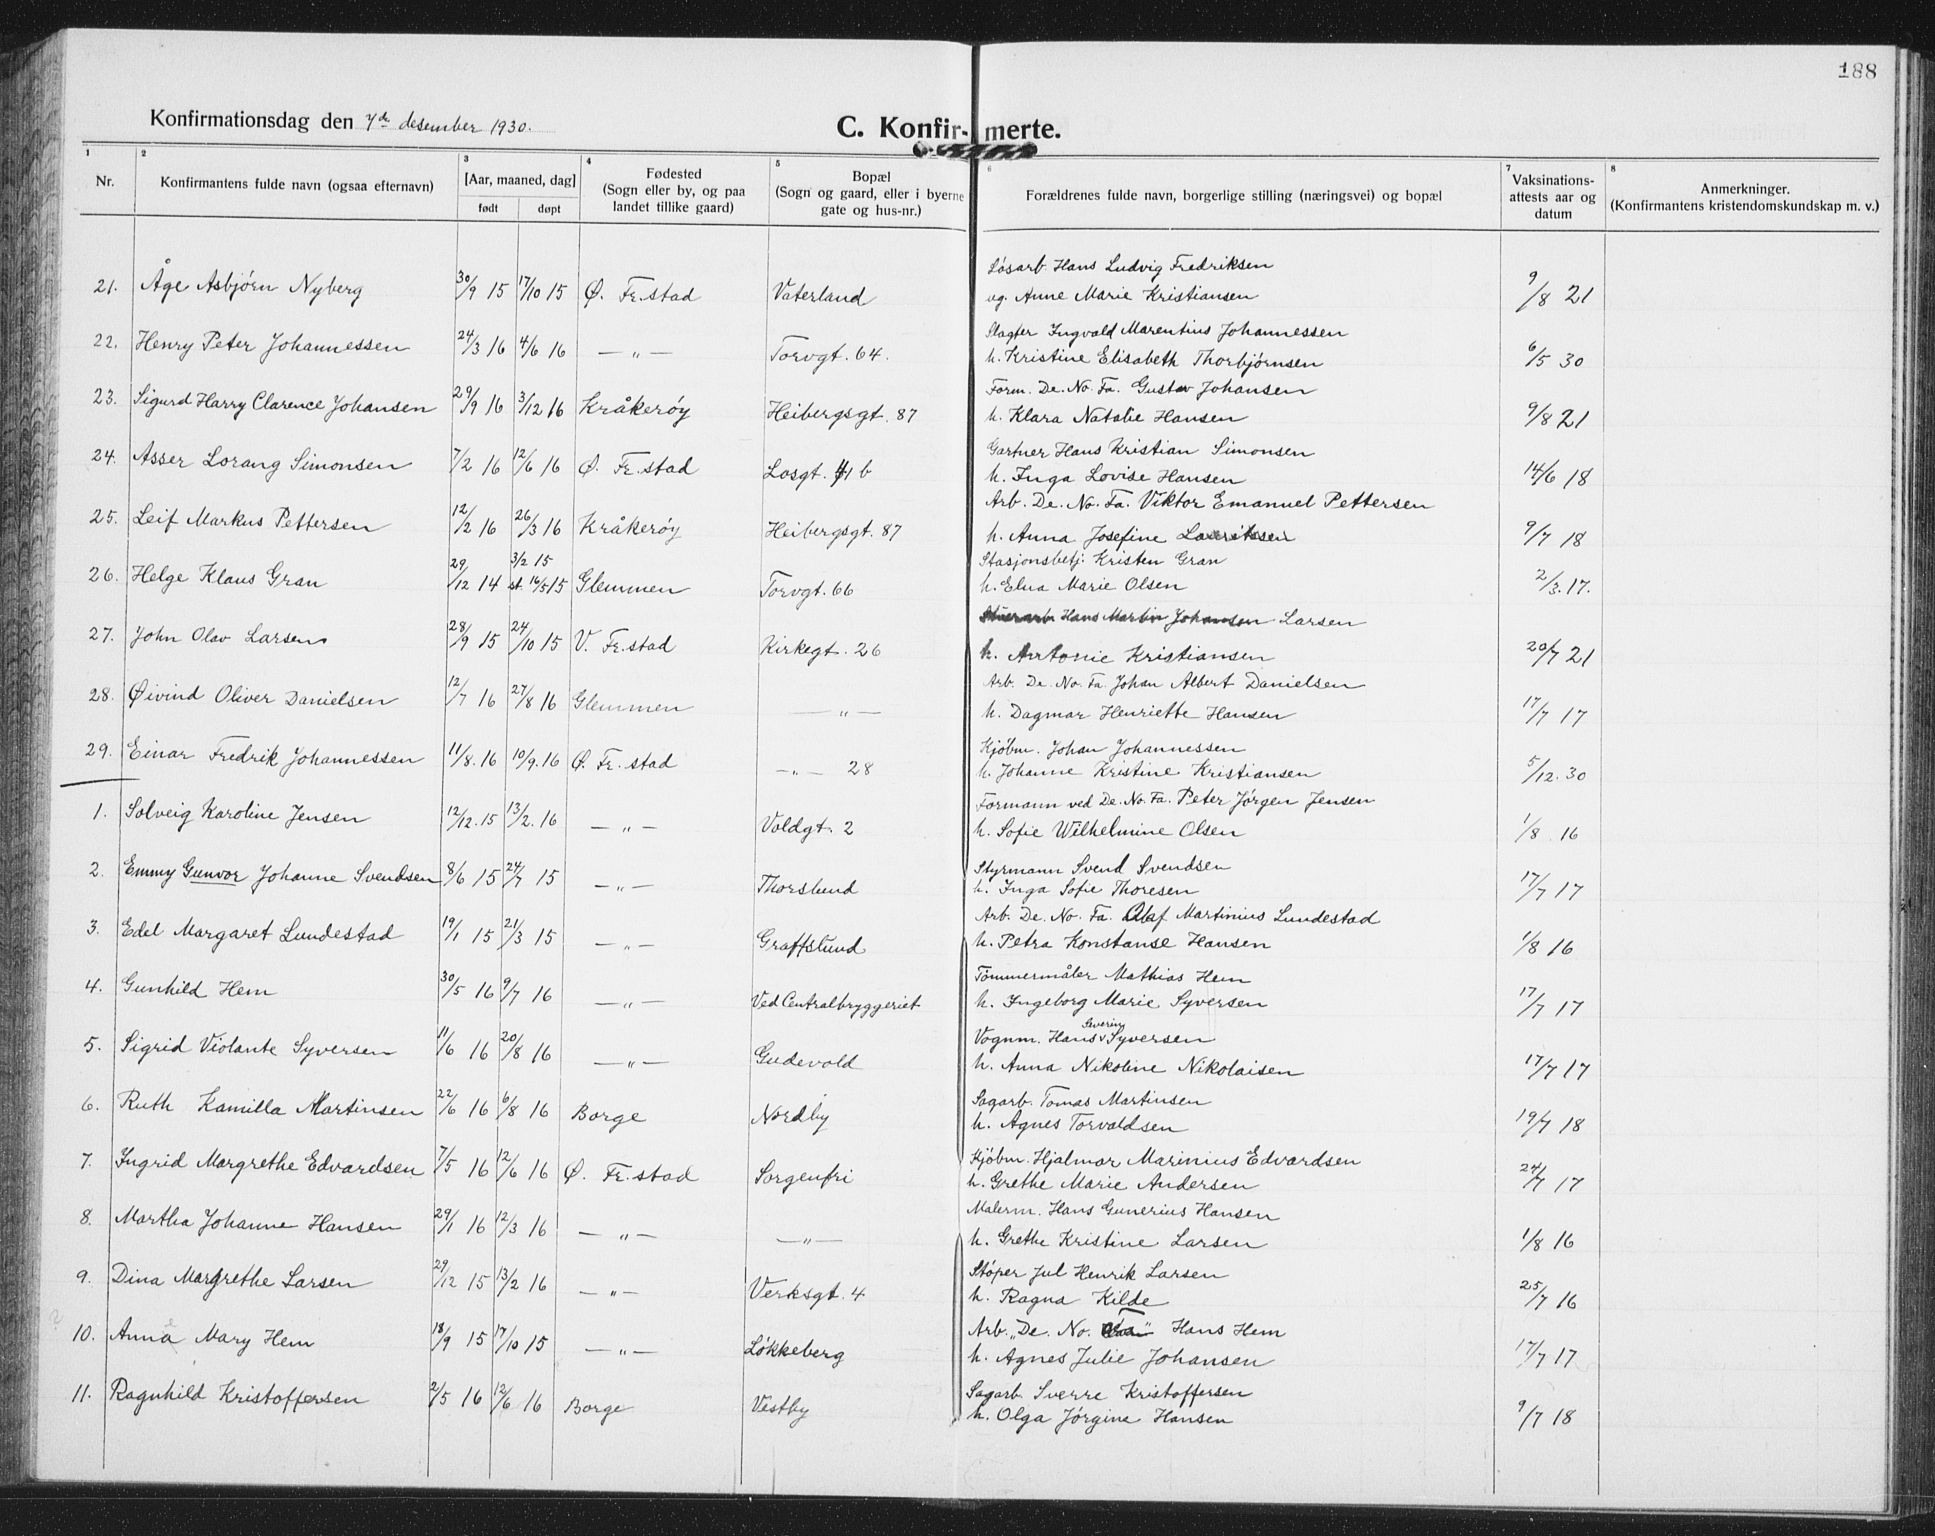 188
Konfirmationsdag den 7de desember 1930.
C. Konfir- merte.
1 2 3 4 5 6 7 8
Nr. Konfirmantens fulde navn (ogsaa efternavn) [Aar, maaned, dag] født døpt Fødested (Sogn eller by, og paa landet tillike gaard) Bopæl (Sogn og gaard, eller i byerne gate og hus-nr.) Forældrenes fulde navn, borgerlige stilling (næringsvei) og bopæl Vaksinations-attests aar og datum Anmerkninger. (Konfirmantens kristendomskundskap m. v.)
Løsarb. Hans Ludvig Fredriksen
21. Åge Asbjørn Nyberg 30/9 15 17/10 15 Ø. Fr.stad Vaterland ug. Anne Marie Kristiansen 9/8 21
Slagter Ingvald Marentius Johannessen
22. Henry Peter Johannessen 24/3 16 4/6 16 —"— Torvgt. 64. h. Kristine Elisabeth Thorbjørnsen 6/5 30
Form. De. No. Fa. Gustav Johansen
23. Sigurd Harry Clarence Johansen 29/9 16 3/12 16 Kråkerøy Heibergsgt. 87 h. Klara Natalie Hansen 9/8 21
Gartner Hans Kristian Simonsen
24. Asser Lorang Simonsen 7/2 16 12/6 16 Ø. Fr.stad Losgt. 41 b h. Inga Lovise Hansen 14/6 18
Arb. De. No. Fa. Viktor Emanuel Pettersen
25. Leif Markus Pettersen 12/2 16 26/3 16 Kråkerøy Heibergsgt. 87 h. Anna Josefine 9/7 18
3/2 15 Stasjonsbetj. Kristen Gran
26. Helge Klaus Gran 29/12 14 st. 16/5 15 Glemmen Torvgt. 66 h. Elna Marie Olsen 2/3.17.
Hans Martin Johanson Larsen
27. John Olav Larsen 28/9 15 24/10 15 V. Fr.stad Kirkegt. 26 h. Antonie Kristiansen 20/7 21
Arb. De. No. Fa. Johan Albert Danielsen
28. Øivind Oliver Danielsen 12/7 16 27/8 16 Glemmen —"— h. Dagmar Henriette Hansen 17/7 17
Kjøbm. Johan Johannessen
29. Einar Fredrik Johannessen 11/8.16 10/9.16 Ø. Fr.stad —"— 28 h. Johanne Kristine Kristiansen 5/12.30
Formann ved De. No. Fa. Peter Jørgen Jensen
1. Solveig Karoline Jensen 12/12.15 13/2.16 —"— Voldgt. 2 h. Sofie Wilhelmine Olsen 1/8 16
Styrmann Svend Svendsen
2. Emmy Gunvor Johanne Svendsen 8/6 15 24/7 15 —"— Thorslund h. Inga Sofie Thoresen 17/7 17
Arb. De. No. Fa. Olaf Martinius Lundestad
3. Edel Margaret Lundestad 19/1 15 21/3 15 —"— Graffslund h. Petra Konstanse Hansen 1/8 16
Tømmermåler Mathias Hem
4. Gunhild Hem 30/5 16 9/7 16 —"— Ved Centralbryggeriet h. Ingeborg Marie Syversen 17/7 17
Vognm. Hans Severin Syversen
5. Sigrid Violante Syversen 11/6 16 20/8 16 —"— Gudevold h. Anna Nikoline Nikolaisen 17/7 17
Sagarb. Tomas Martinsen
6. Ruth Kamilla Martinsen 22/6 16 6/8 16 Borge Nordby h. Agnes Torvaldsen 19/7 18
Kjøbm. Hjalmar Marinius Edvardsen
7. Ingrid Margrethe Edvardsen 7/5 16 12/6 16 Ø. Fr.stad Sorgenfri h. Grethe Marie Andersen 24/7 17
Malerm. Hans Gunerius Hansen
8. Martha Johanne Hansen 29/1 16 12/3 16 —"— —"— h. Grethe Kristine Larsen 1/8 16
Støper Jul Henrik Larsen
9. Dina Margrethe Larsen 29/12 15 13/2 16 —"— Verksgt. 4 h. Ragna Kilde 25/7 16
Arb. „De. No. Fa" Hans Hem
10. Anna Mary Hem 18/9 15 17/10 15 —"— Løkkeberg h. Agnes Julie Johansen 17/7 17
Sagarb. Sverre Kristoffersen
11. Ragnhild Kristoffersen 2/5 16 12/6 16 Borge Vestby h. Olga Jørgine Hansen 9/7 18